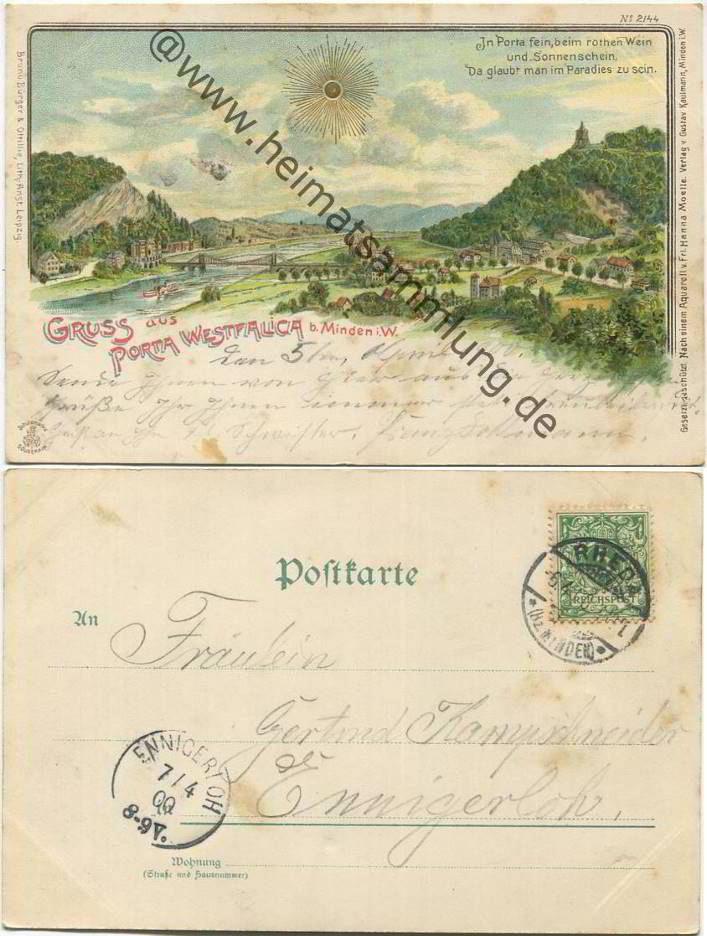 No 2144
In Porta fein, beim rothen Wein
und Sonnenschein,
Da glaubt man im Paradies zu sein.
Bruno Bürger & Ottillie, Lith. Anst. Leipzig.
Gesetzl. geschützt. Nach einem Aquarell v. Frl. Hanna Moelle. Verlag v. Gustav Kaulmann, Minden i.W.
@www.heimatsammlung.de
GRUSS aus
PORTA WESTFALICA b. Minden i.W.
Den 5ten
Sende Ihnen von hier aus
Grüße
Schwester
Postkarte
An
Fräulein
Gertrud Kampschneider
Ennigerloh,
RHEDA
(BZ. MINDEN)
REICHSPOST
ENNIGERLOH
7/4
00
8-9V.
Wohnung
(Straße und Hausnummer)